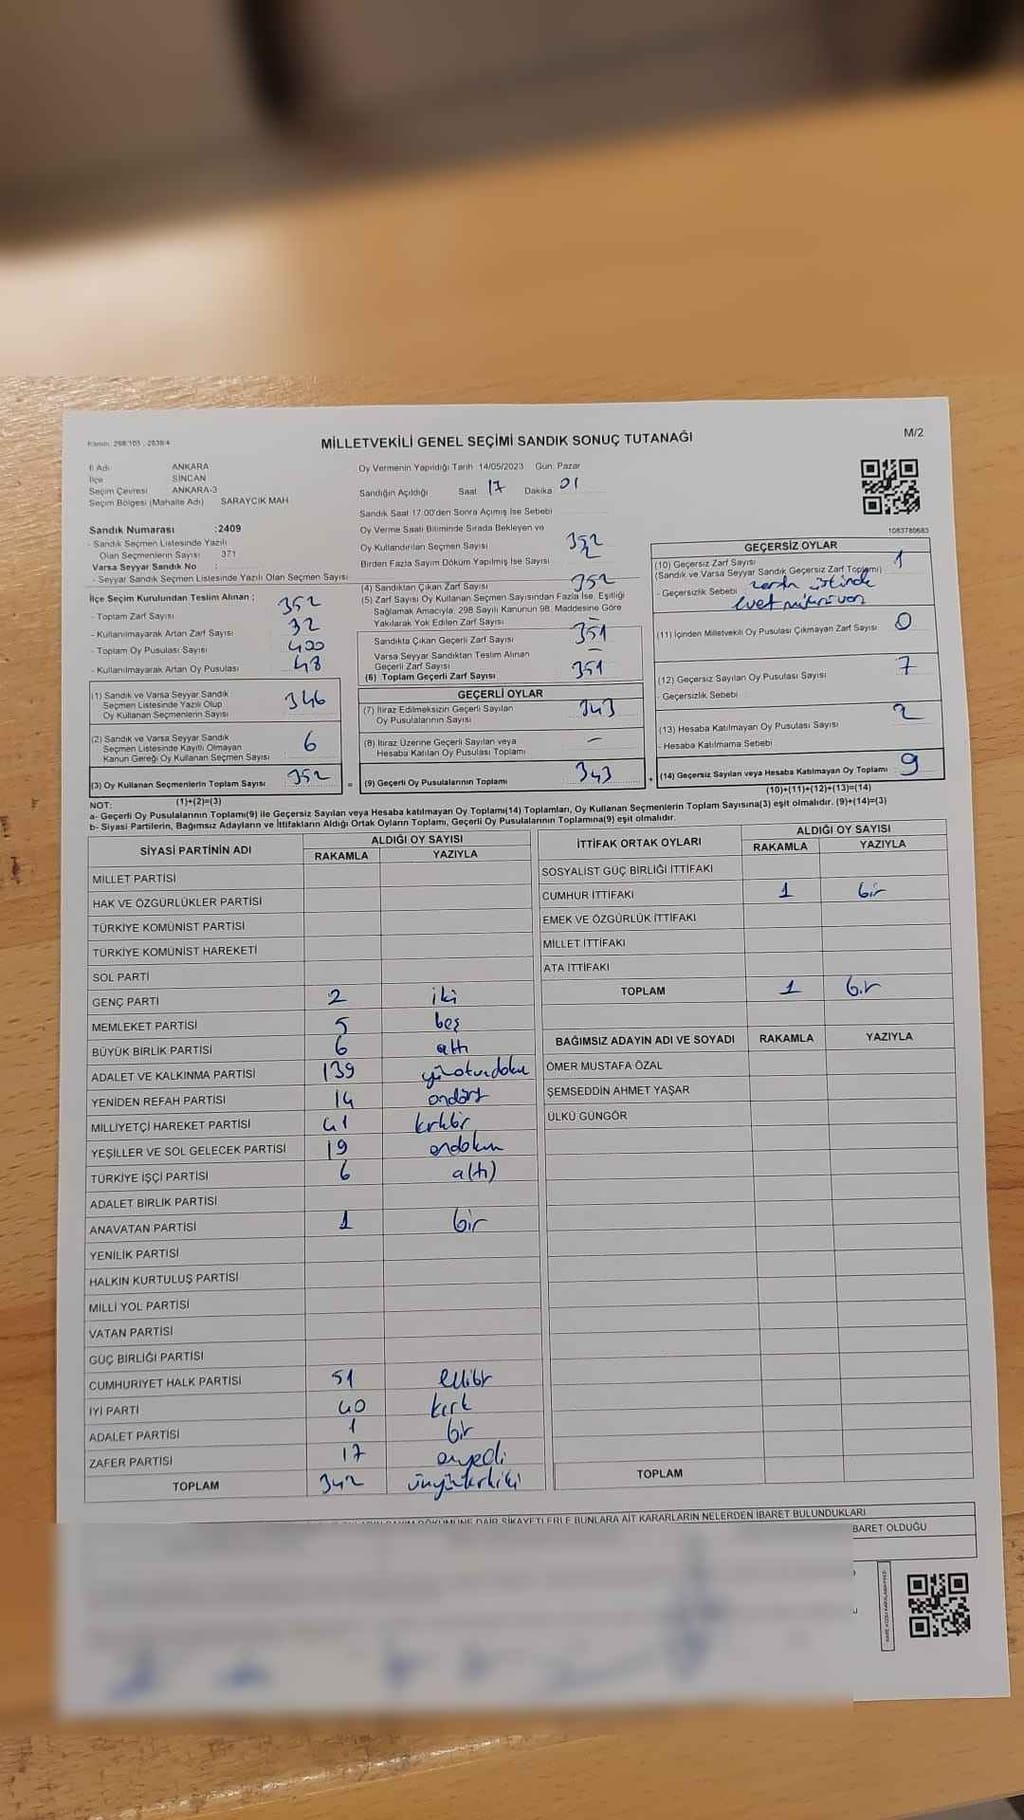 Kanun: 298/105 , 2839/4
MİLLETVEKİLİ GENEL SEÇİMİ SANDIK SONUÇ TUTANAĞI
M/2
İl Adı ANKARA
İlçe SİNCAN
Seçim Çevresi ANKARA-3
Seçim Bölgesi (Mahalle Adı) SARAYCIK MAH
Sandık Numarası :2409
- Sandık Seçmen Listesinde Yazılı
Olan Seçmenlerin Sayısı 371
Varsa Seyyar Sandık No :
- Seyyar Sandık Seçmen Listesinde Yazılı Olan Seçmen Sayısı
İlçe Seçim Kurulundan Teslim Alınan :
- Toplam Zarf Sayısı 352
- Kullanılmayarak Artan Zarf Sayısı 32
- Toplam Oy Pusulası Sayısı 400
- Kullanılmayarak Artan Oy Pusulası 48
(1) Sandık ve Varsa Seyyar Sandık
Seçmen Listesinde Yazılı Olup
Oy Kullanan Seçmenlerin Sayısı 346
(2) Sandık ve Varsa Seyyar Sandık
Seçmen Listesinde Kayıtlı Olmayan
Kanun Gereği Oy Kullanan Seçmen Sayısı 6
(3) Oy Kullanan Seçmenlerin Toplam Sayısı 352
(1)+(2)=(3)
Oy Vermenin Yapıldığı Tarih 14/05/2023 Gün: Pazar
Sandığın Açıldığı Saat 17 Dakika 01
Sandık Saat 17.00'den Sonra Açımış İse Sebebi
Oy Verme Saati Bitiminde Sırada Bekleyen ve
Oy Kullandırılan Seçmen Sayısı 352
Birden Fazla Sayım Döküm Yapılmış İse Sayısı
(4) Sandıktan Çıkan Zarf Sayısı 352
(5) Zarf Sayısı Oy Kullanan Seçmen Sayısından Fazla İse, Eşitliği
Sağlamak Amacıyla, 298 Sayılı Kanunun 98. Maddesine Göre
Yakılarak Yok Edilen Zarf Sayısı –
Sandıkta Çıkan Geçerli Zarf Sayısı 351
Varsa Seyyar Sandıktan Teslim Alınan
Geçerli Zarf Sayısı –
(6) Toplam Geçerli Zarf Sayısı 351
GEÇERLİ OYLAR
(7) İtiraz Edilmeksizin Geçerli Sayılan
Oy Pusulalarının Sayısı 343
(8) İtiraz Üzerine Geçerli Sayılan veya
Hesaba Katılan Oy Pusulası Toplamı –
= (9) Geçerli Oy Pusulalarının Toplamı 343 +
1083780683
GEÇERSİZ OYLAR
(10) Geçersiz Zarf Sayısı 1
(Sandık ve Varsa Seyyar Sandık Geçersiz Zarf Toplamı)
- Geçersizlik Sebebi zarfın üstünde
evet mührü var
(11) İçinden Milletvekili Oy Pusulası Çıkmayan Zarf Sayısı 0
(12) Geçersiz Sayılan Oy Pusulası Sayısı 7
- Geçersizlik Sebebi
(13) Hesaba Katılmayan Oy Pusulası Sayısı 2
- Hesaba Katılmama Sebebi
(14) Geçersiz Sayılan veya Hesaba Katılmayan Oy Toplamı 9
(10)+(11)+(12)+(13)=(14)
NOT:
a- Geçerli Oy Pusulalarının Toplamı(9) ile Geçersiz Sayılan veya Hesaba katılmayan Oy Toplamı(14) Toplamları, Oy Kullanan Seçmenlerin Toplam Sayısına(3) eşit olmalıdır. (9)+(14)=(3)
b- Siyasi Partilerin, Bağımsız Adayların ve İttifakların Aldığı Ortak Oyların Toplamı, Geçerli Oy Pusulalarının Toplamına(9) eşit olmalıdır.
SİYASİ PARTİNİN ADI ALDIĞI OY SAYISI
RAKAMLA YAZIYLA
MİLLET PARTİSİ
HAK VE ÖZGÜRLÜKLER PARTİSİ
TÜRKİYE KOMÜNİST PARTİSİ
TÜRKİYE KOMÜNİST HAREKETİ
SOL PARTİ
GENÇ PARTİ 2 iki
MEMLEKET PARTİSİ 5 beş
BÜYÜK BİRLİK PARTİSİ 6 altı
ADALET VE KALKINMA PARTİSİ 139 yüzotuzdokuz
YENİDEN REFAH PARTİSİ 14 ondört
MİLLİYETÇİ HAREKET PARTİSİ 41 kırkbir
YEŞİLLER VE SOL GELECEK PARTİSİ 19 ondokuz
TÜRKİYE İŞÇİ PARTİSİ 6 altı
ADALET BİRLİK PARTİSİ
ANAVATAN PARTİSİ 1 bir
YENİLİK PARTİSİ
HALKIN KURTULUŞ PARTİSİ
MİLLİ YOL PARTİSİ
VATAN PARTİSİ
GÜÇ BİRLİĞİ PARTİSİ
CUMHURİYET HALK PARTİSİ 51 ellibir
İYİ PARTİ 40 kırk
ADALET PARTİSİ 1 bir
ZAFER PARTİSİ 17 onyedi
TOPLAM 342 üçyüzkırkiki
İTTİFAK ORTAK OYLARI ALDIĞI OY SAYISI
RAKAMLA YAZIYLA
SOSYALİST GÜÇ BİRLİĞİ İTTİFAKI
CUMHUR İTTİFAKI 1 bir
EMEK VE ÖZGÜRLÜK İTTİFAKI
MİLLET İTTİFAKI
ATA İTTİFAKI
TOPLAM 1 bir
BAĞIMSIZ ADAYIN ADI VE SOYADI RAKAMLA YAZIYLA
ÖMER MUSTAFA ÖZAL
ŞEMSEDDİN AHMET YAŞAR
ÜLKÜ GÜNGÖR
TOPLAM
DÖKÜMÜNE DAİR ŞİKAYETLERLE BUNLARA AİT KARARLARIN NELERDEN İBARET BULUNDUKLARI
BARET OLDUĞU